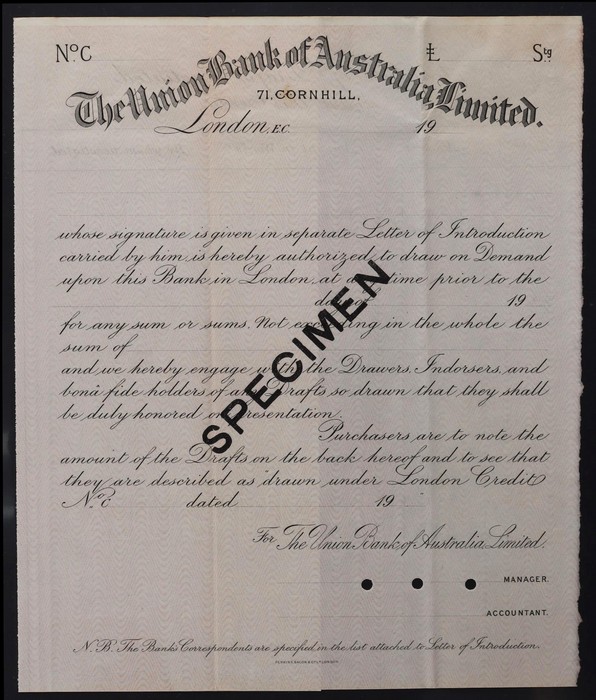 NºC £ Stg
The Union Bank of Australia, Limited.
71, CORNHILL,
London, E.C. 19
whose signature is given in separate Letter of Introduction
carried by him, is hereby authorized to draw on Demand
upon this Bank in London, at a time prior to the
19
for any sum or sums. Not exceeding in the whole the
sum of
and we hereby engage with the Drawers, Indorsers, and
bonâ fide holders of all Drafts so drawn that they shall
be duly honored on presentation.
Purchasers are to note the
amount of the Drafts on the back hereof and to see that
they are described as drawn under London Credit
Nº C dated 19
For The Union Bank of Australia Limited.
MANAGER.
ACCOUNTANT.
N.B. The Bank's Correspondents are specified in the list attached to Letter of Introduction.
SPECIMEN